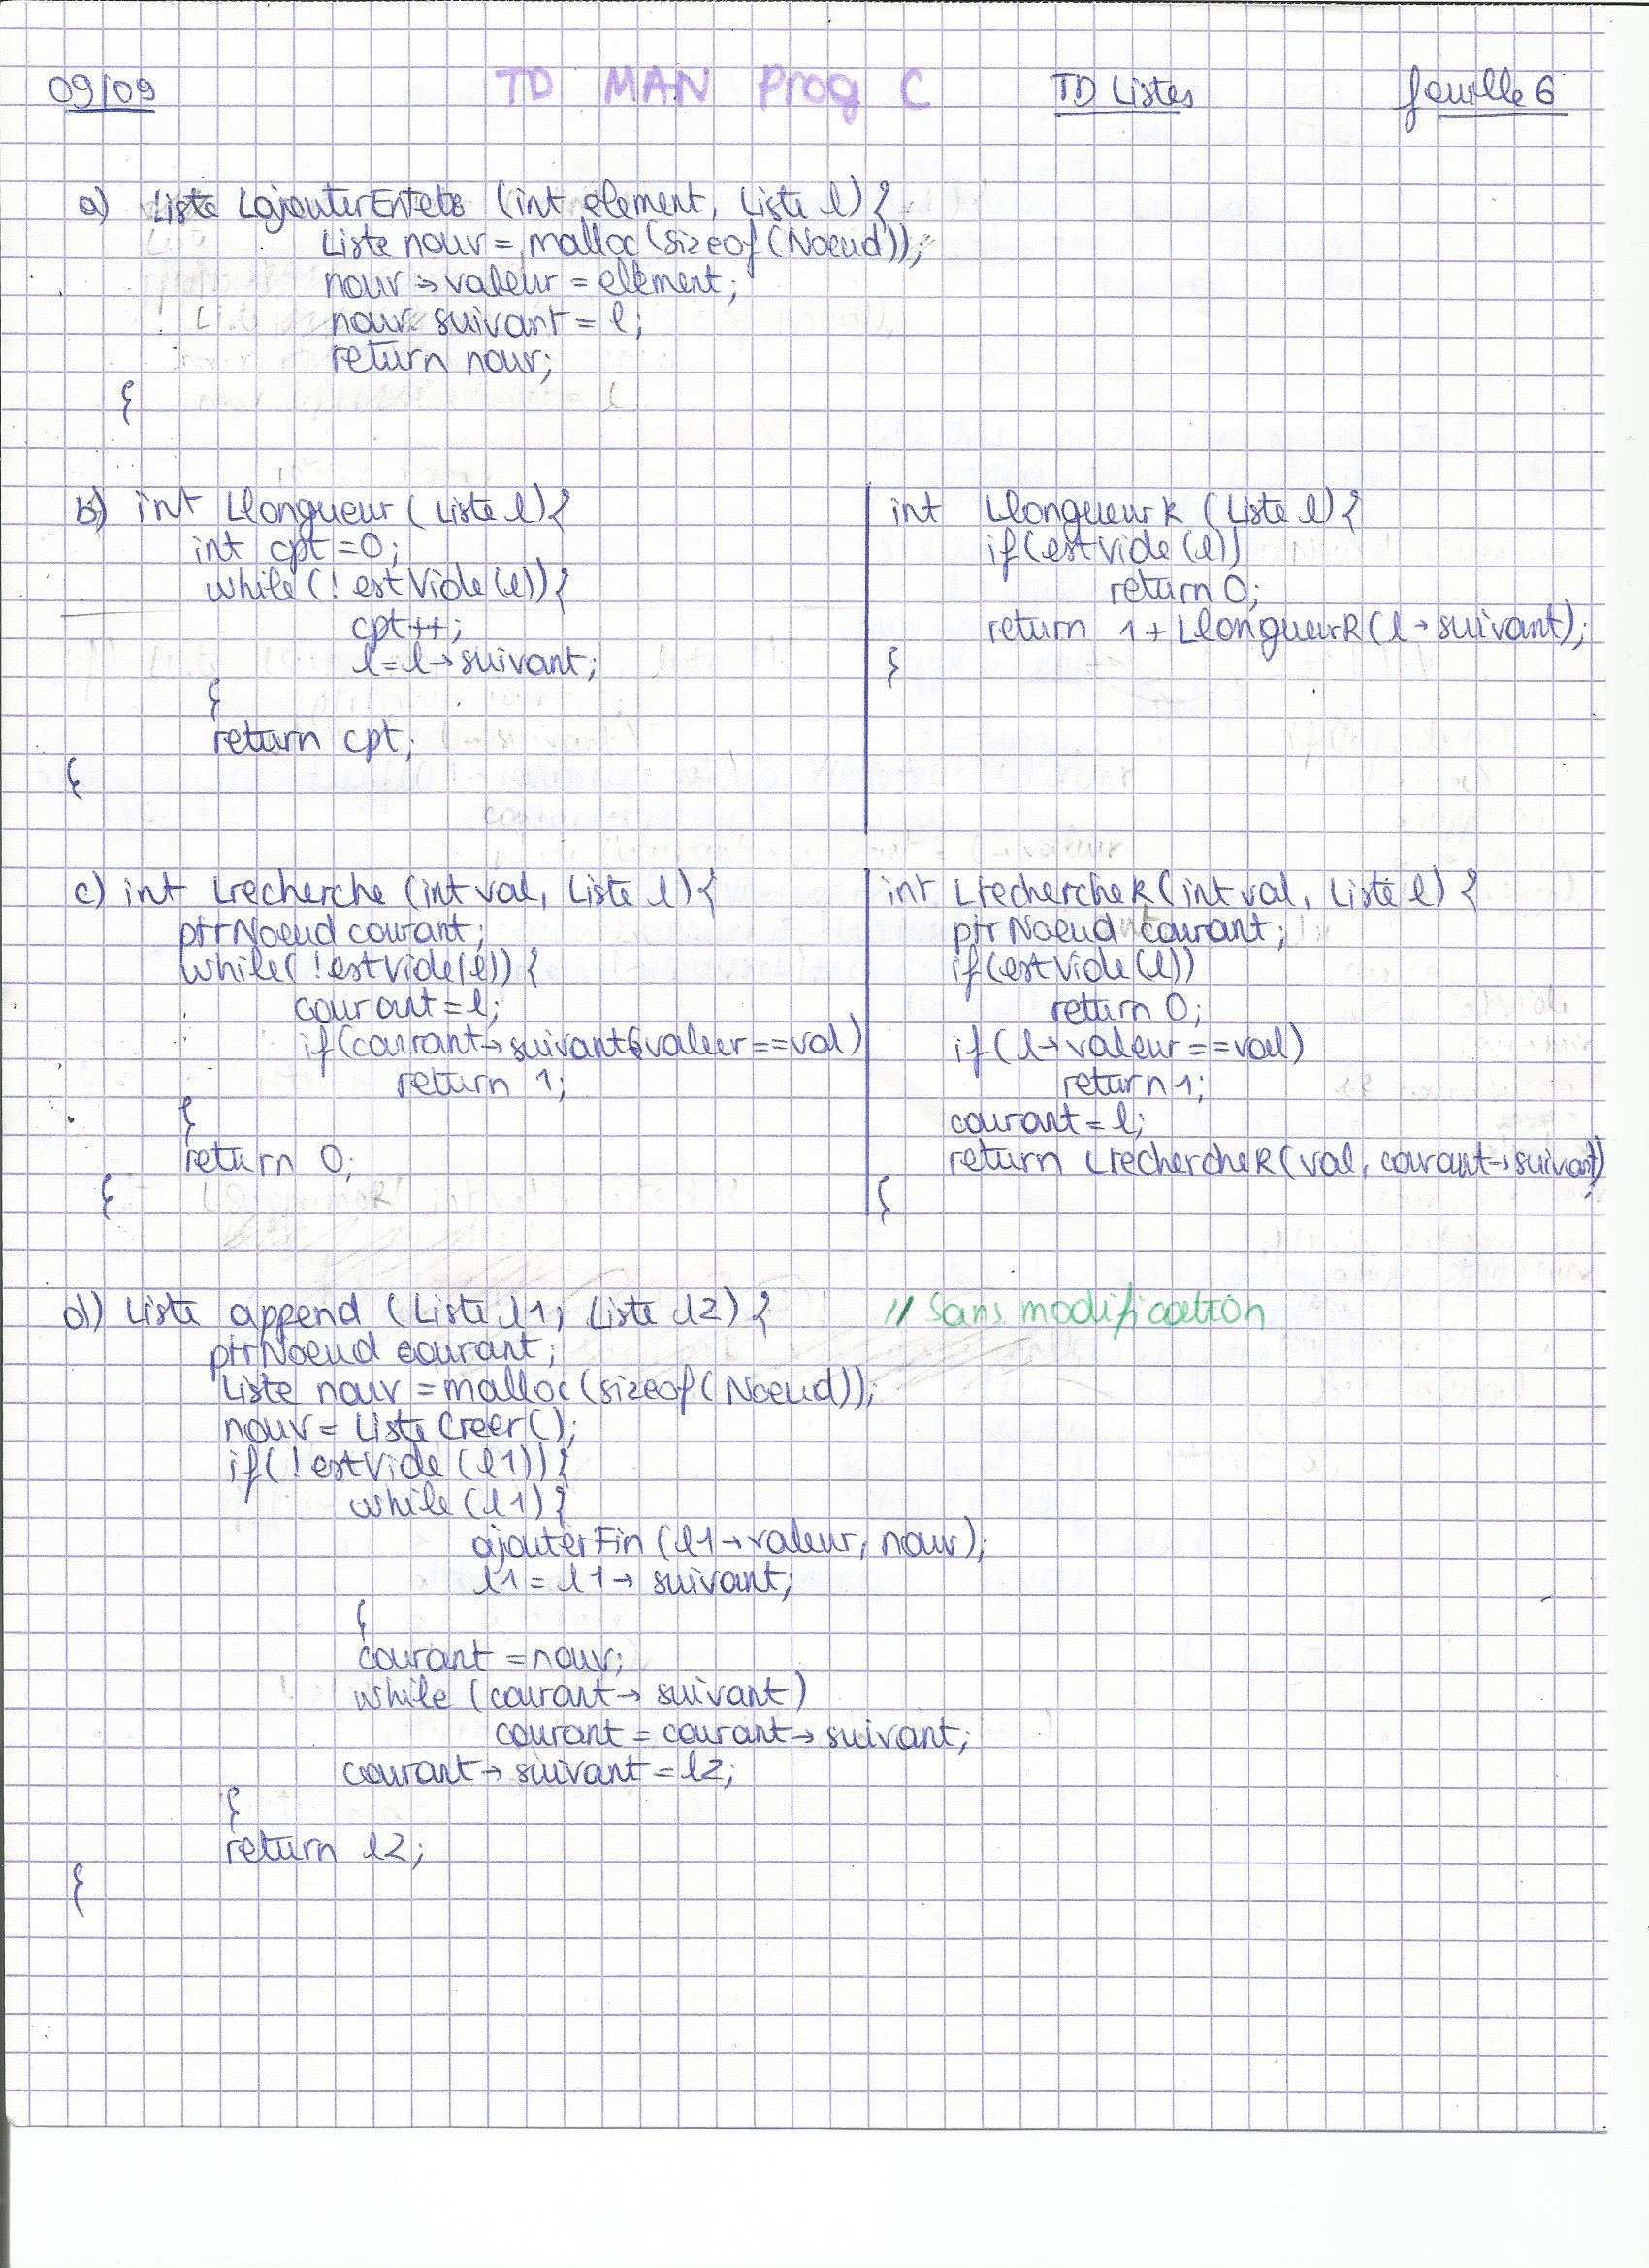 09/09 TD MAN Prog C TD Listes feuille 6
a) Liste LajouterEntete (int element, Liste l){
Liste nouv = malloc(sizeof(Noeud));
nouv->valeur = element;
nouv. suivant = l;
return nouv;
}
b) int Llongueur (Liste l){
int cpt=0;
while(! estVide(l)){
cpt++;
l=l->suivant;
}
return cpt;
}
int LlongueurR (Liste l){
if(estVide(l))
return 0;
return 1+LlongueurR(l->suivant);
}
c) int Lrecherche (int val, Liste l){
ptrNoeud courant;
while( !estVide(l)) {
courant=l;
if(courant->suivant valeur==val)
return 1;
}
return 0;
}
int LrechercheR(int val, Liste l) {
ptrNoeud courant;
if(estVide(l))
return 0;
if(l->valeur==val)
return 1;
courant=l;
return LrechercheR(val, courant->suivant);
}
d) Liste append (Liste l1, Liste l2) { // Sans modification
ptrNoeud courant;
Liste nouv =malloc(sizeof(Noeud));
nouv= ListeCreer();
if(!estVide(l1)){
while(l1){
ajouterFin(l1->valeur, nouv);
l1=l1-> suivant;
}
courant =nouv;
while (courant-> suivant)
courant = courant-> suivant;
courant-> suivant=l2;
}
return l2;
}